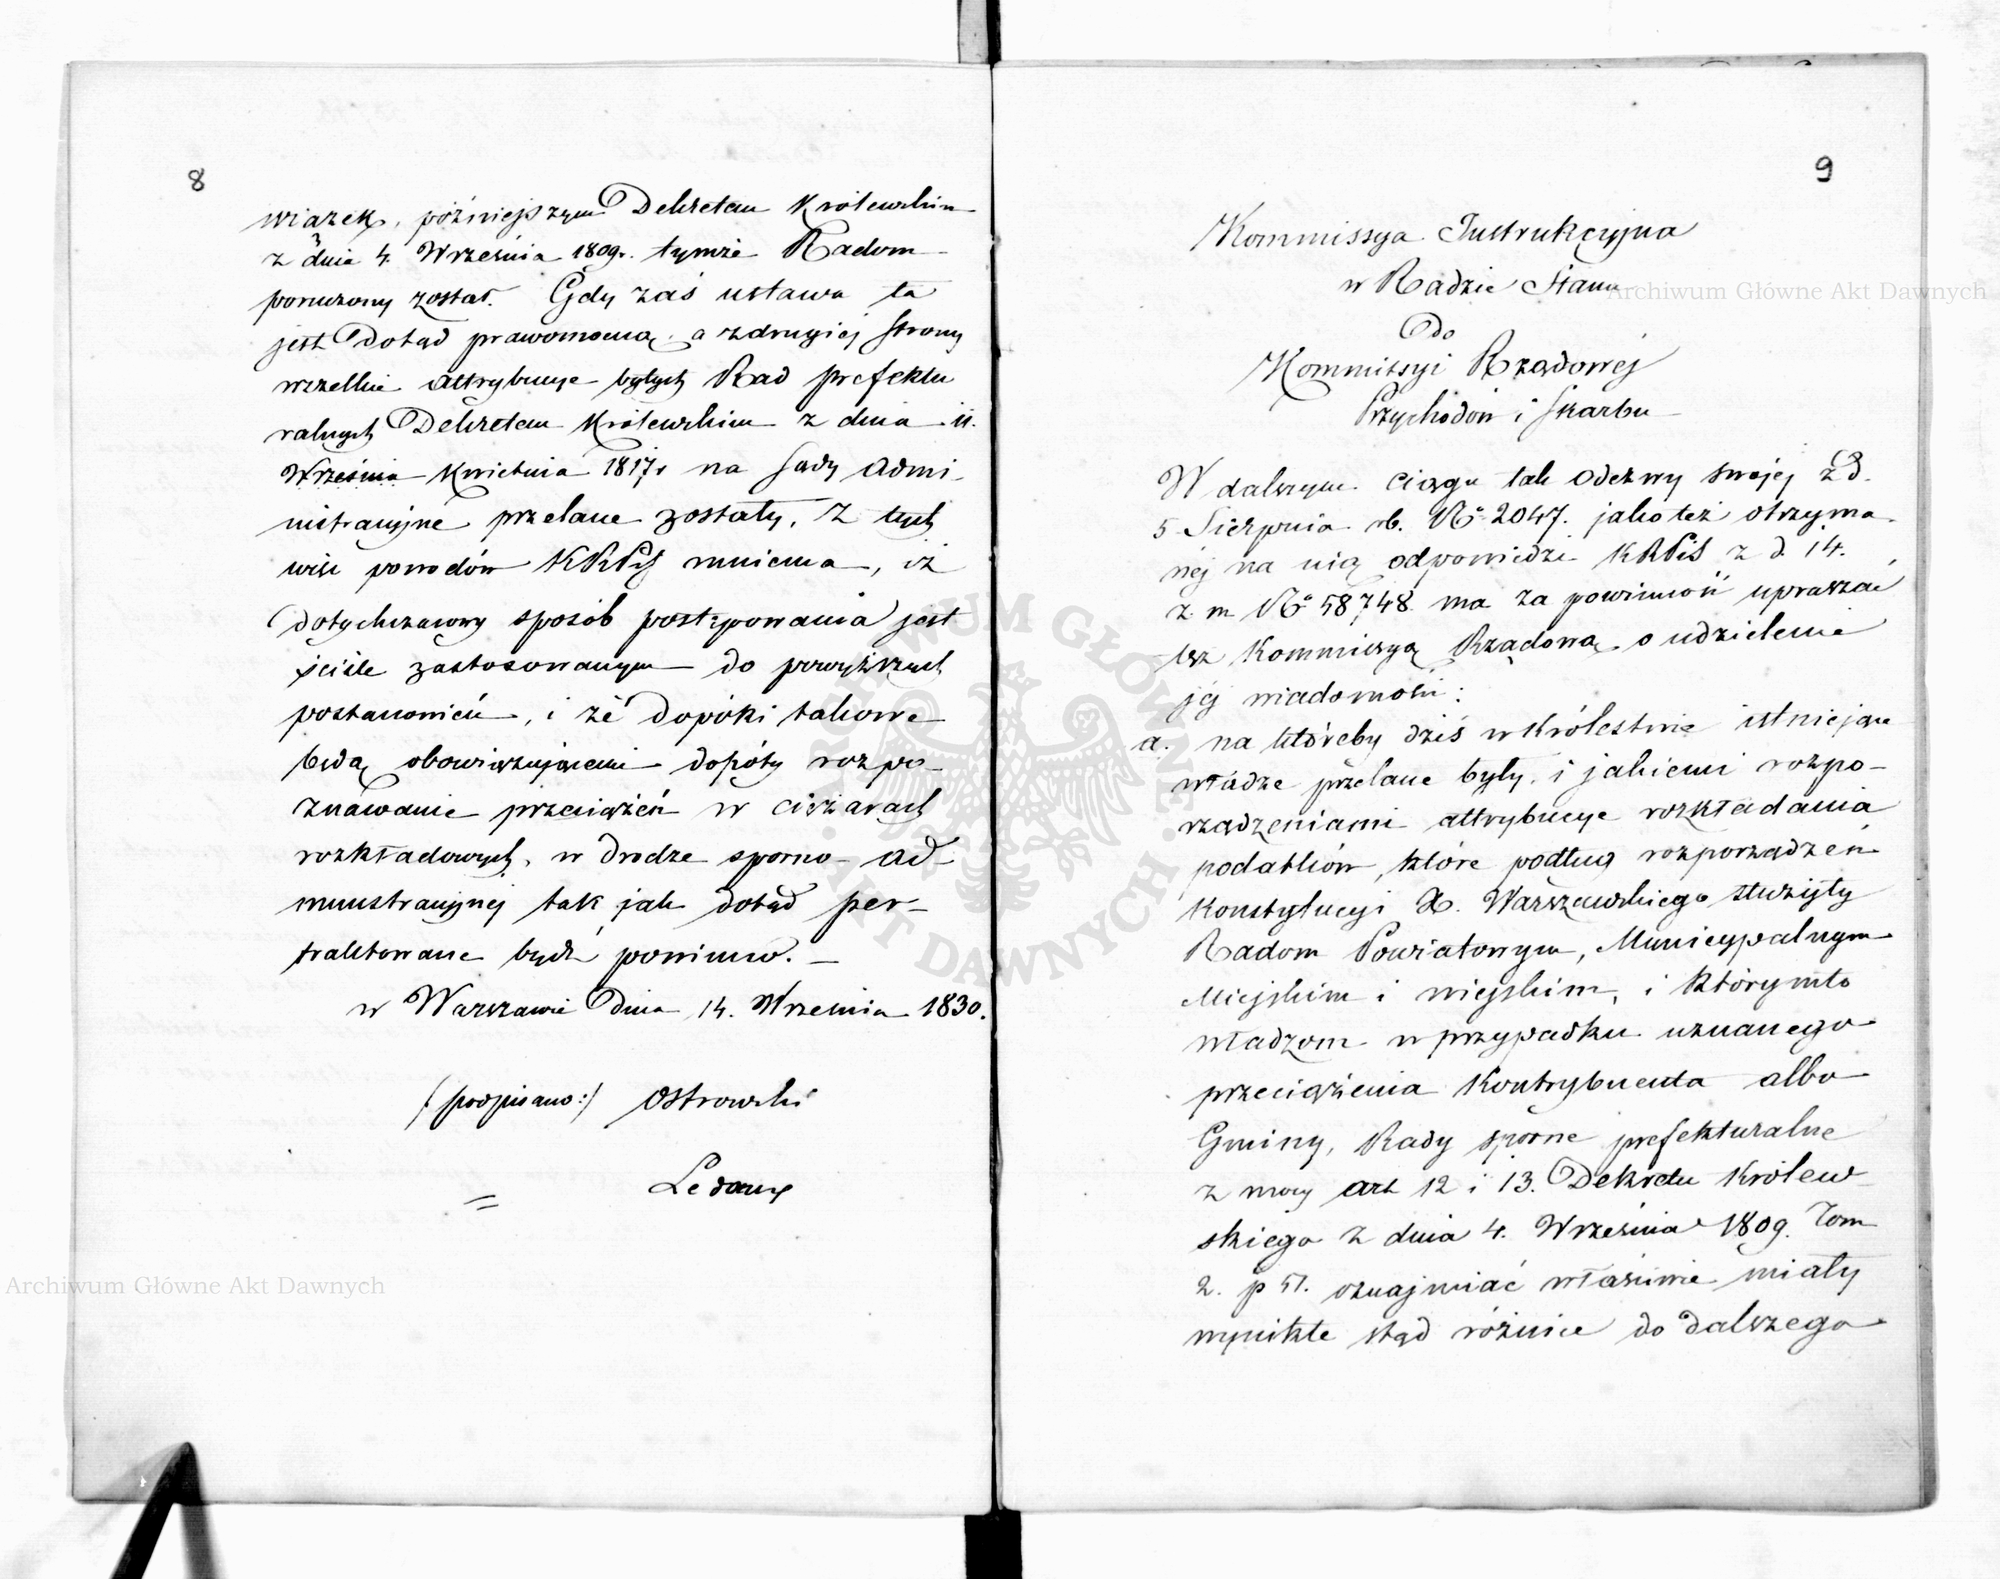 8
wiązek, późniejszym Dekretem Królewskim
z dnia 4. Września 1809r. tymże Radom
poruczony został. Gdy zaś ustawa ta
jest dotąd prawomocną, a zdrugiej strony
wszelkie attrybucye byłych Rad prefektu
ralnych Dekretem Królewskim z dnia 11.
Września Kwietnia 1817r na Sądy Admi-
nistracyjne przelane zostały, z tych
więc powodów KRPiS mniema, iż
dotychczasowy sposób postępowania jest
ściśle zastosowanym do powyższych
postanowień, i że dopóki takowe
będą obowiązującemi dopóty rozpo-
znawanie przeciążeń w ciężarach
rozkładowych, w drodze sporno-ad-
ministracyjnej tak jak dotąd per-
traktowane bydź powinno.
w Warszawie dnia 14. Września 1830.
/:podpisano:/ Ostrowski
Ledoux
9
Kommissya Instrukcyjna
w Radzie Stanu
Do
Kommissyi Rządowej
Przychodów i Skarbu
W dalszym ciągu tak odezwy swojej z d.
5 Sierpnia rb. No 2047. jako też otrzyma
nej na nią odpowiedzi KRPiS z d. 14.
z. m No 58748 ma za powinność upraszać
tęż Kommissyą Rządową o udzielenie
jej wiadomości:
a. na któreby dziś w Królestwie istniejące
władze przelane były, i jakiemi rozpo-
rządzeniami attrybucye rozkładania
podatków, które podług rozporządzeń
Konstytucyi X. Warszawskiego służyły
Radom Powiatowym, Municypalnym
Miejskim i wiejskim, i którymto
władzom w przypadku uznanego
przeciążenia Kontrybuenta albo
Gminy, Rady sporne prefekturalne
z mocy art 12 i 13. Dekretu Królew
skiego z dnia 4. Września 1809. Tom
2. p 51. oznajmiać właściwie miały
wynikłe stąd różnice do dalszego
Archiwum Główne Akt Dawnych
Archiwum Główne Akt Dawnych
ARCHIWUM GŁÓWNE AKT DAWNYCH